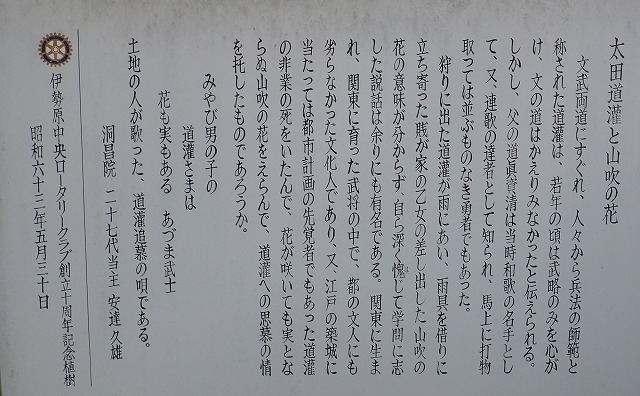 太田道灌と山吹の花
文武両道にすぐれ、人々から兵法の師範と
称された道灌は、若年の頃は武略のみを心が
け、文の道はかえりみなかったと伝えられる。
しかし、父の道眞資清は当時和歌の名手とし
て、又、連歌の達者として知られ、馬上に打物
取っては並ぶものなき勇者でもあった。
狩りに出た道灌が雨にあい、雨具を借りに
立ち寄った賎が家の乙女の差し出した山吹の
花の意味が分からず、自ら深く愧じて学問に志
した説話は余りにも有名である。関東に生ま
れ、関東に育った武将の中で、都の文人にも
劣らなかった文化人であり、又、江戸の築城に
当たっては都市計画の先覚者でもあった道灌
の非業の死をいたんで、花が咲いても実とな
らぬ山吹の花をえらんで、道灌への思慕の情
を托したものであろうか。
みやび男の子の
道灌さまは
花も実もある あづま武士
土地の人が歌った、道灌追慕の唄である。
洞昌院 二十七代当主 安達久雄
伊勢原中央ロータリークラブ創立十周年記念植樹
昭和六十三年五月三十日